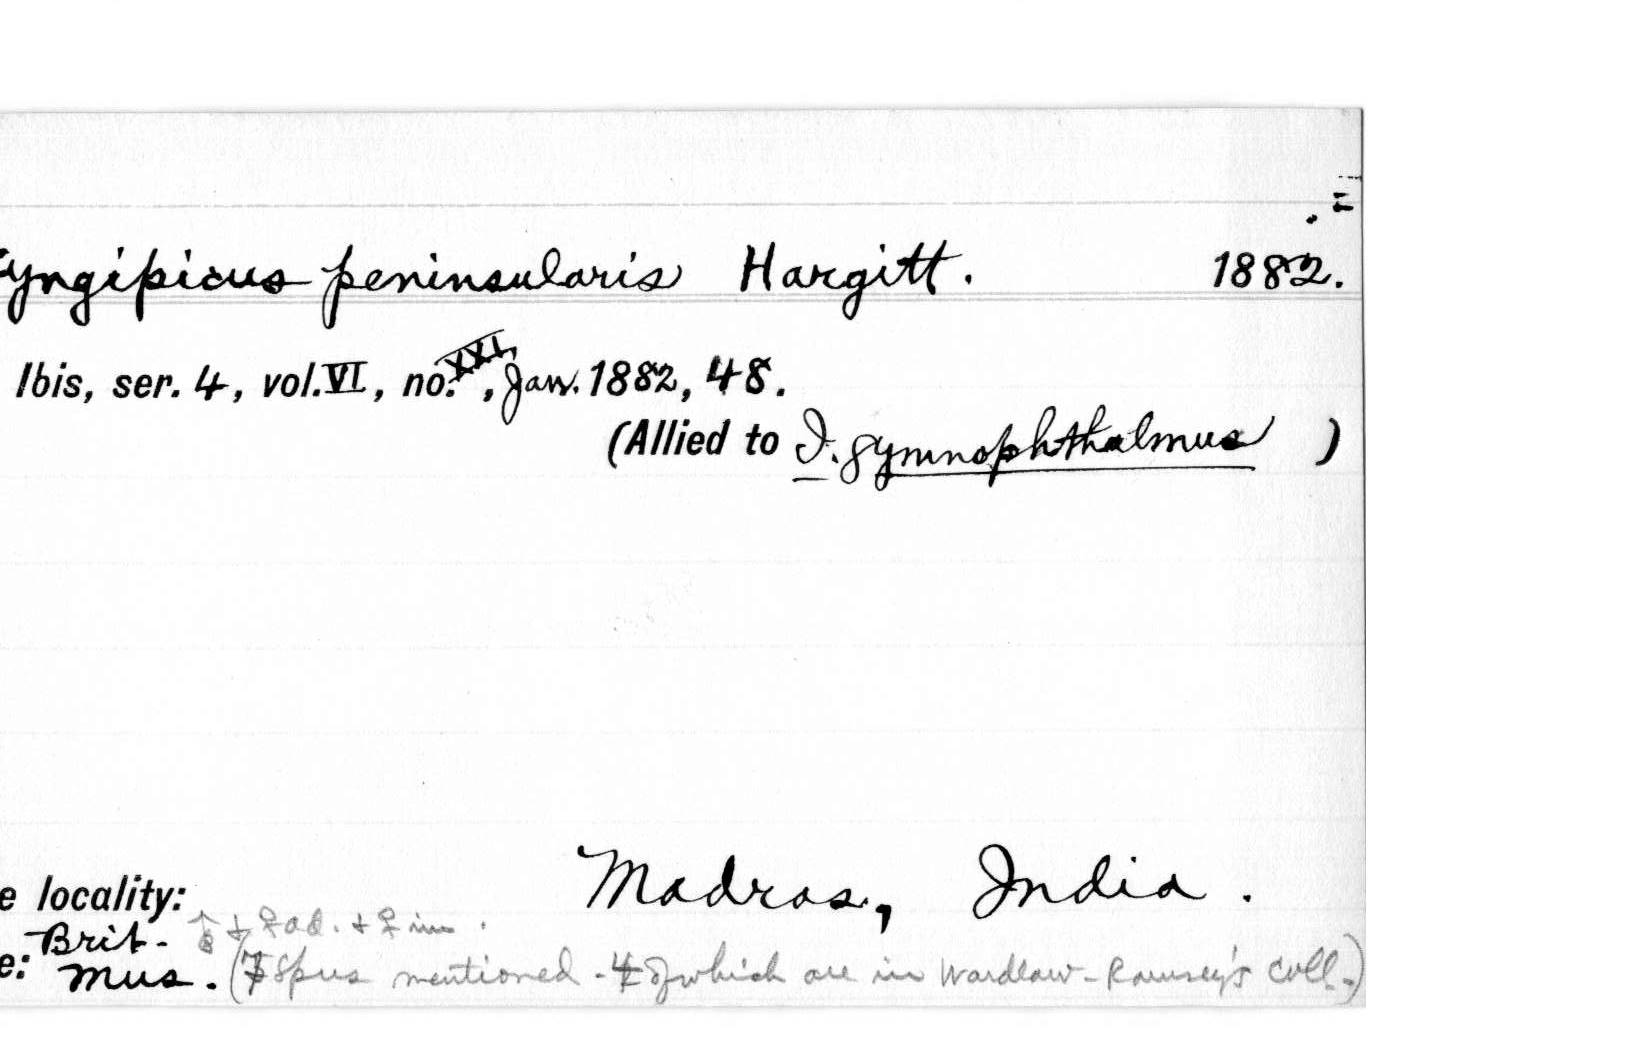 yngipicus peninsularis Hargitt. 1882.
Ibis, ser. 4, vol. VI, no. XXI, Jan. 1882, 48.
(Allied to I. gymnophthalmus )
e locality: Madras, India.
♂ + ♀ ad. + ♀ im.
e: Brit. Mus. ( 8 spns mentioned - 4 of which are in Wardlaw-Ramsey's Coll.)